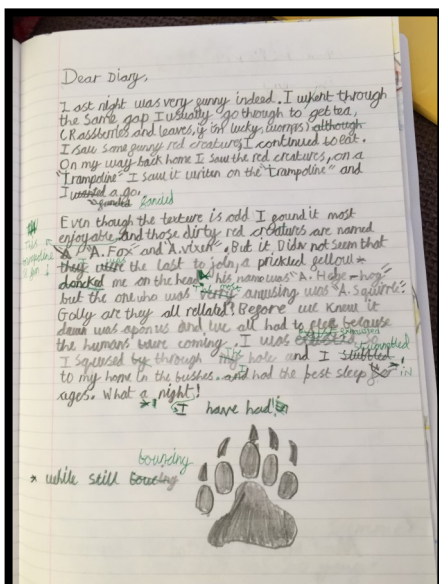 Dear Diary,
Last night was very gunny indeed. I went through
the same gap I usually go through to get tea,
(Rassberries and leaves, if im lucky, worms) although
I saw some gunny red creatures, I continued to eat.
On my way back home I saw the red creatures, on a
"Trampoline" I saw it writen on the "trampoline" and
I wanted a go.
fanded
Even though the texture is odd I gound it most
enjoyable, and those dirty red creatures are named
"A. Fox" and "A. vixen". But it Didn not seem that
they were the last to join, a prickled fellow *
doncked me on the head, his name was "A. Hege-hog"
but the one who was most amusing was "A. Squirrel".
Golly are they all rellated! Before we knew it
dawn was apon us and we all had to flee because
the humans were coming. I was so
I squesed by through hole and I stubbled
to my home in the bushes. and I had the best sleep in
ages. What a night!
I have had
* while still bouncing